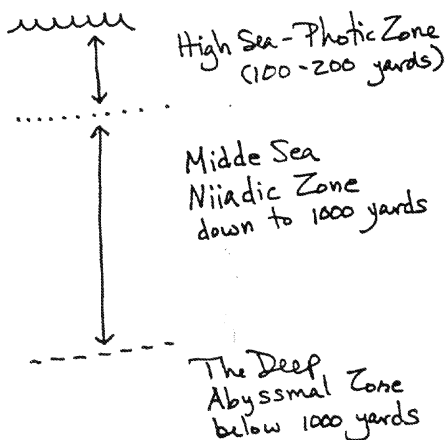 High Sea-Photic Zone
(100-200 yards)
Midde Sea
Niiadic Zone
down to 1000 yards
The Deep
Abyssmal Zone
below 1000 yards